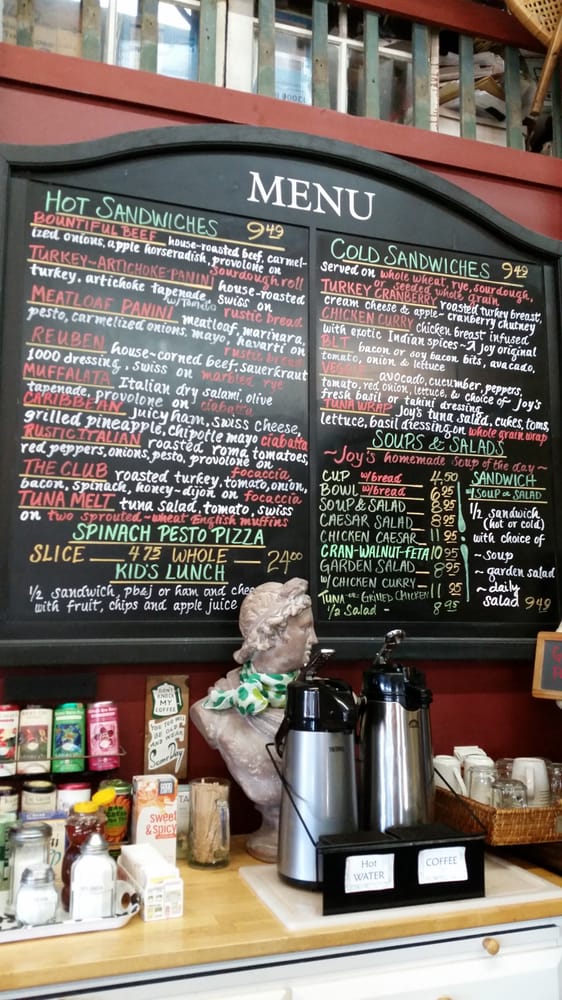 MENU
HOT SANDWICHES 9.49
BOUNTIFUL BEEF house-roasted beef, carmel-
ized onions, apple horseradish, provolone on
sourdough roll
TURKEY-ARTICHOKE PANINI house-roasted
turkey, artichoke tapenade, swiss on
w/tomato rustic bread
MEATLOAF PANINI meatloaf, marinara,
pesto, carmelized onions, mayo, havarti on
rustic bread
REUBEN house-corned beef, sauerkraut
1000 dressing, swiss on marbled rye
MUFFALATA Italian dry salami, olive
tapenade, provolone on ciabatta
CARIBBEAN juicy ham, swiss cheese,
grilled pineapple, chipotle mayo ciabatta
RUSTIC ITALIAN roasted roma tomatoes,
red peppers, onions, pesto, provolone on
focaccia
THE CLUB roasted turkey, tomato, onion,
bacon, spinach, honey-dijon on focaccia
TUNA MELT tuna salad, tomato, swiss
on two sprouted-wheat English muffins
SPINACH PESTO PIZZA
SLICE 4.75 WHOLE 24.00
KID'S LUNCH
1/2 sandwich, pb&j or ham and chee
with fruit, chips and apple juice
COLD SANDWICHES 9.49
served on whole wheat, rye, sourdough,
or seeded whole grain
TURKEY CRANBERRY roasted turkey breast,
cream cheese & apple-cranberry chutney
CHICKEN CURRY chicken breast infused
with exotic Indian spices - A Joy original
BLT bacon or soy bacon bits, avocado,
tomato, onion & lettuce
avocado, cucumber, peppers,
tomato, red onion, lettuce, & choice of Joy's
fresh basil or tahini dressing
TUNA WRAP Joy's tuna salad, cukes, toms,
lettuce, basil dressing on whole grain wrap
SOUPS & SALADS
~Joy's homemade Soup of the day~
CUP w/bread 4.50
BOWL w/bread 6.95
SOUP & SALAD 8.95
CAESAR SALAD 8.95
CHICKEN CAESAR 11.95
CRAN-WALNUT-FETA 10.95
GARDEN SALAD 8.95
w/CHICKEN CURRY-
TUNA or GRILLED CHICKEN 11.95
1/2 Salad - 8.95
SANDWICH
w/SOUP or SALAD
1/2 sandwich
(hot or cold)
with choice of
~soup
~garden salad
~daily
salad 9.49
DON'T
KNOCK
MY
COFFEE
YOU TOO WILL
BE OLD
AND WEAK
Some Day
sweet
& spicy
Hot
WATER
COFFEE